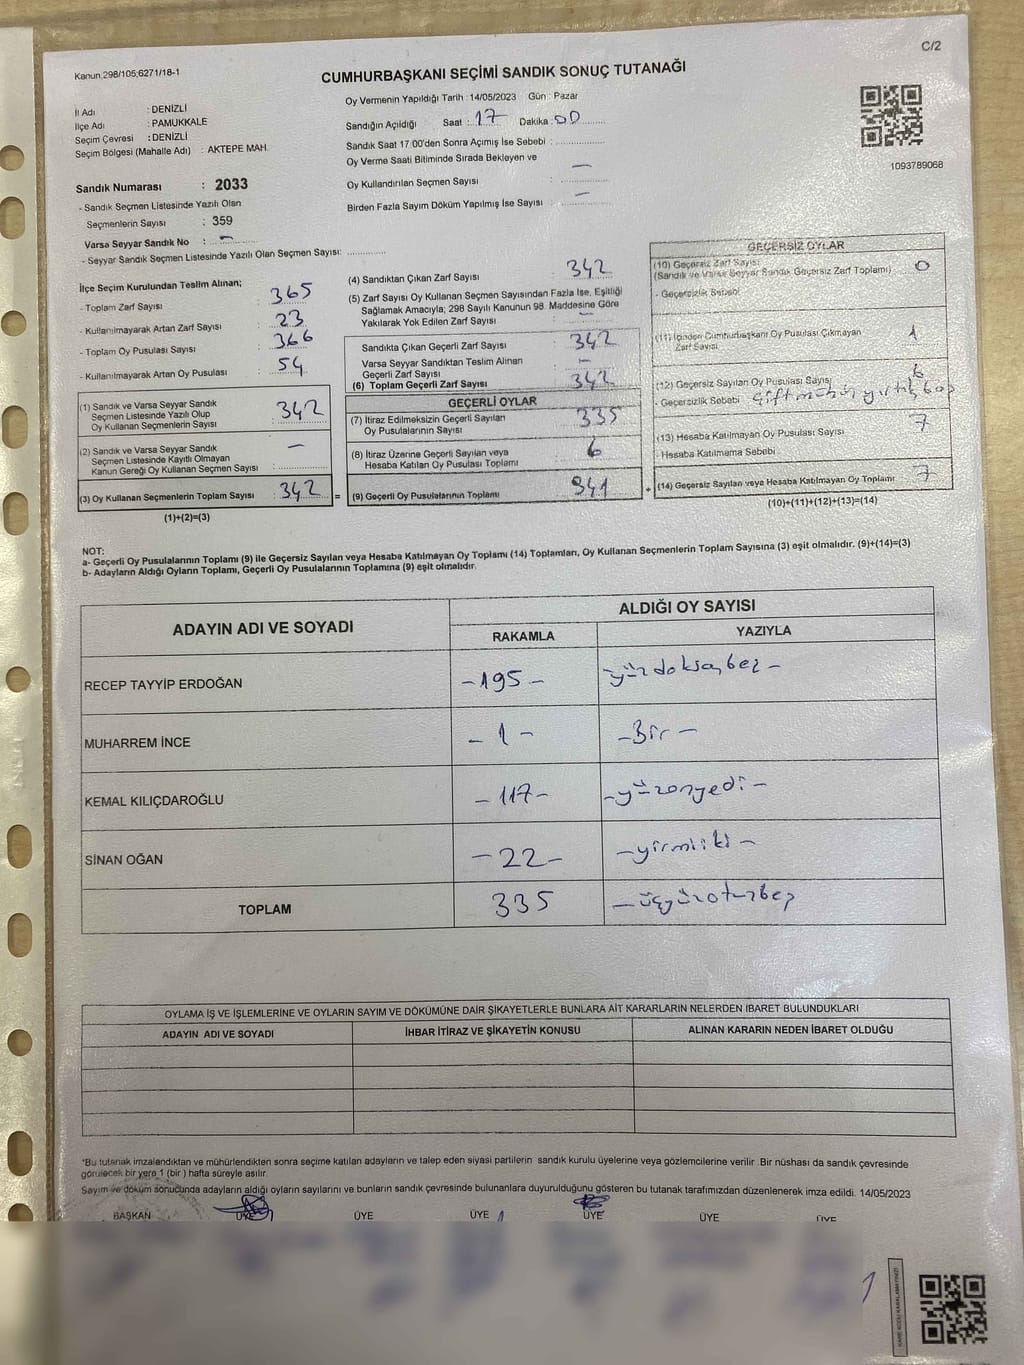 C/2
Kanun.298/105;6271/18-1
CUMHURBAŞKANI SEÇİMİ SANDIK SONUÇ TUTANAĞI
İl Adı : DENİZLİ
İlçe Adı : PAMUKKALE
Seçim Çevresi : DENİZLİ
Seçim Bölgesi (Mahalle Adı) : AKTEPE MAH.
Oy Vermenin Yapıldığı Tarih : 14/05/2023 Gün : Pazar
Sandığın Açıldığı Saat : 17 Dakika : 00
Sandık Saat 17:00'den Sonra Açımış İse Sebebi :
Oy Verme Saati Bitiminde Sırada Bekleyen ve
Oy Kullandırılan Seçmen Sayısı : —
Birden Fazla Sayım Döküm Yapılmış İse Sayısı : —
1093789068
Sandık Numarası : 2033
- Sandık Seçmen Listesinde Yazılı Olan
Seçmenlerin Sayısı : 359
Varsa Seyyar Sandık No : —
- Seyyar Sandık Seçmen Listesinde Yazılı Olan Seçmen Sayısı:
İlçe Seçim Kurulundan Teslim Alınan;
- Toplam Zarf Sayısı : 365
- Kullanılmayarak Artan Zarf Sayısı : 23
- Toplam Oy Pusulası Sayısı : 366
- Kullanılmayarak Artan Oy Pusulası : 54
(1) Sandık ve Varsa Seyyar Sandık
Seçmen Listesinde Yazılı Olup
Oy Kullanan Seçmenlerin Sayısı : 342
(2) Sandık ve Varsa Seyyar Sandık
Seçmen Listesinde Kayıtlı Olmayan
Kanun Gereği Oy Kullanan Seçmen Sayısı : —
(3) Oy Kullanan Seçmenlerin Toplam Sayısı : 342 =
(1)+(2)=(3)
(4) Sandıktan Çıkan Zarf Sayısı : 342
(5) Zarf Sayısı Oy Kullanan Seçmen Sayısından Fazla İse, Eşitliği
Sağlamak Amacıyla; 298 Sayılı Kanunun 98. Maddesine Göre
Yakılarak Yok Edilen Zarf Sayısı : —
Sandıkta Çıkan Geçerli Zarf Sayısı : 342
Varsa Seyyar Sandıktan Teslim Alınan
Geçerli Zarf Sayısı : —
(6) Toplam Geçerli Zarf Sayısı : 342
GEÇERLİ OYLAR
(7) İtiraz Edilmeksizin Geçerli Sayılan
Oy Pusulalarının Sayısı : 335
(8) İtiraz Üzerine Geçerli Sayılan veya
Hesaba Katılan Oy Pusulası Toplamı : 6
(9) Geçerli Oy Pusulalarının Toplamı : 341 +
GEÇERSİZ OYLAR
(10) Geçersiz Zarf Sayısı
(Sandık ve Varsa Seyyar Sandık Geçersiz Zarf Toplamı) : 0
- Geçersizlik Sebebi
(11) İçinden Cumhurbaşkanı Oy Pusulası Çıkmayan
Zarf Sayısı 1
(12) Geçersiz Sayılan Oy Pusulası Sayısı 6
- Geçersizlik Sebebi
(13) Hesaba Katılmayan Oy Pusulası Sayısı 7
- Hesaba Katılmama Sebebi
(14) Geçersiz Sayılan veya Hesaba Katılmayan Oy Toplamı : 7
(10)+(11)+(12)+(13)=(14)
NOT:
a- Geçerli Oy Pusulalarının Toplamı (9) ile Geçersiz Sayılan veya Hesaba Katılmayan Oy Toplamı (14) Toplamları, Oy Kullanan Seçmenlerin Toplam Sayısına (3) eşit olmalıdır. (9)+(14)=(3)
b- Adayların Aldığı Oyların Toplamı, Geçerli Oy Pusulalarının Toplamına (9) eşit olmalıdır.
ADAYIN ADI VE SOYADI ALDIĞI OY SAYISI
RAKAMLA YAZIYLA
RECEP TAYYİP ERDOĞAN -195- yüzdoksanbeş-
MUHARREM İNCE -1- -Bir-
KEMAL KILIÇDAROĞLU -117- -yüzonyedi-
SİNAN OĞAN -22- -yirmiiki-
TOPLAM 335 -üçyüzotuzbeş
OYLAMA İŞ VE İŞLEMLERİNE VE OYLARIN SAYIM VE DÖKÜMÜNE DAİR ŞİKAYETLERLE BUNLARA AİT KARARLARIN NELERDEN İBARET BULUNDUKLARI
ADAYIN ADI VE SOYADI İHBAR İTİRAZ VE ŞİKAYETİN KONUSU ALINAN KARARIN NEDEN İBARET OLDUĞU
*Bu tutanak imzalandıktan ve mühürlendikten sonra seçime katılan adayların ve talep eden siyasi partilerin sandık kurulu üyelerine veya gözlemcilerine verilir. Bir nüshası da sandık çevresinde
görülecek bir yere 1 (bir ) hafta süreyle asılır.
Sayım ve döküm sonucunda adayların aldığı oyların sayılarını ve bunların sandık çevresinde bulunanlara duyurulduğunu gösteren bu tutanak tarafımızdan düzenlenerek imza edildi. 14/05/2023
BAŞKAN ÜYE ÜYE ÜYE ÜYE ÜYE ÜYE